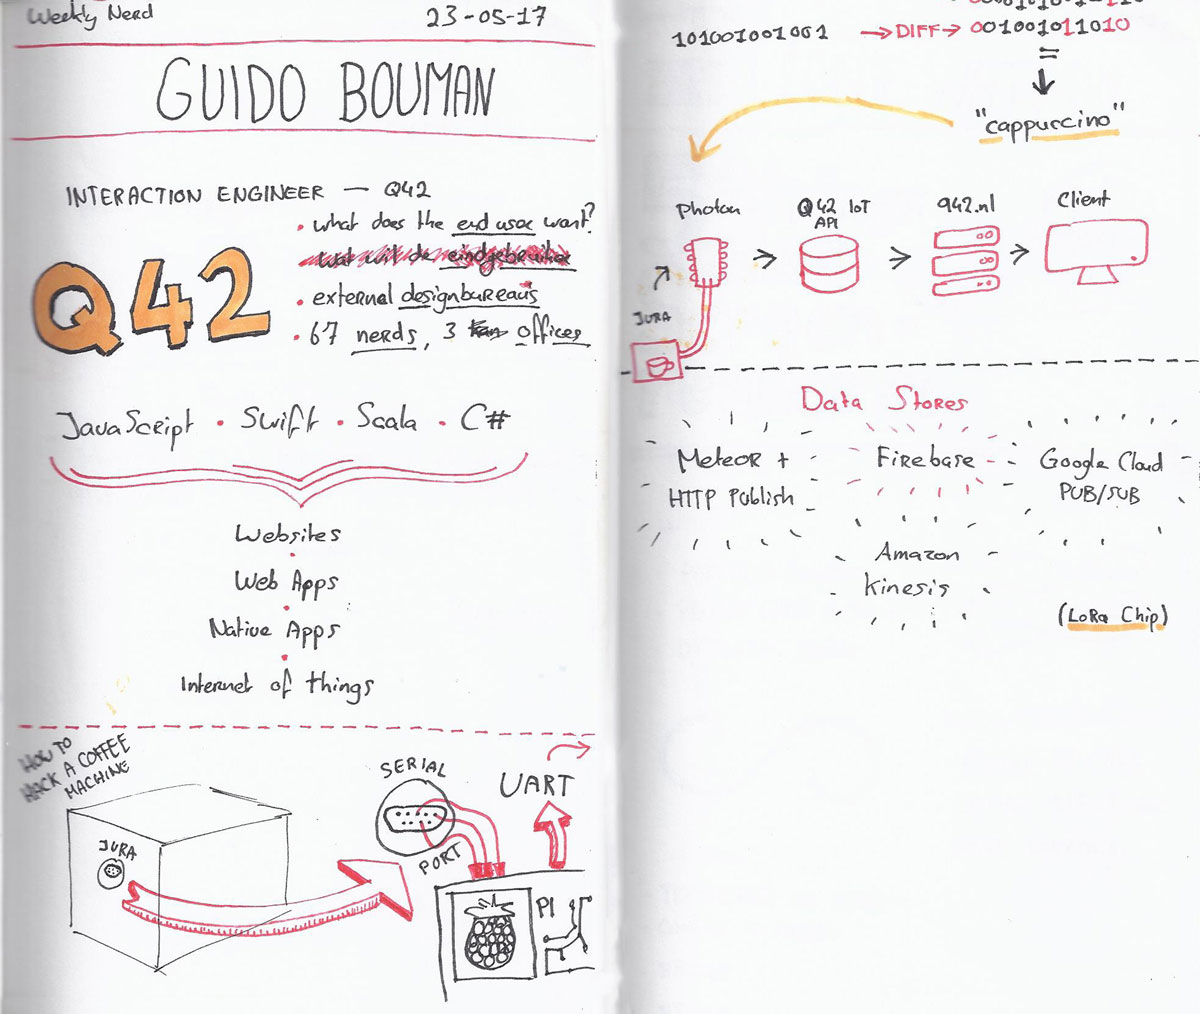 Weekly Nerd 23-05-17
GUIDO BOUMAN
INTERACTION ENGINEER — Q42
• what does the end user want?
wat wil de eindgebruiker
• external designbureau's
• 67 nerds, 3 offices
Q42
JavaScript • Swift • Scala • C#
Websites
Web Apps
Native Apps
Internet of things
HOW TO
HACK A COFFEE
MACHINE
JURA
SERIAL
PORT
UART
PI
101001001001 → DIFF → 001001011010
=
"cappuccino"
Photon
Q42 IoT
API
q42.nl
Client
JURA
Data Stores
Meteor +
HTTP Publish
Firebase
Google Cloud
PUB/SUB
Amazon
Kinesis
(LoRa Chip)